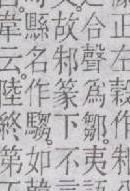 正左穀作邾
合聲爲鄒。夷
故邾篆下不言
縣名作騶如
韋云。陸終第